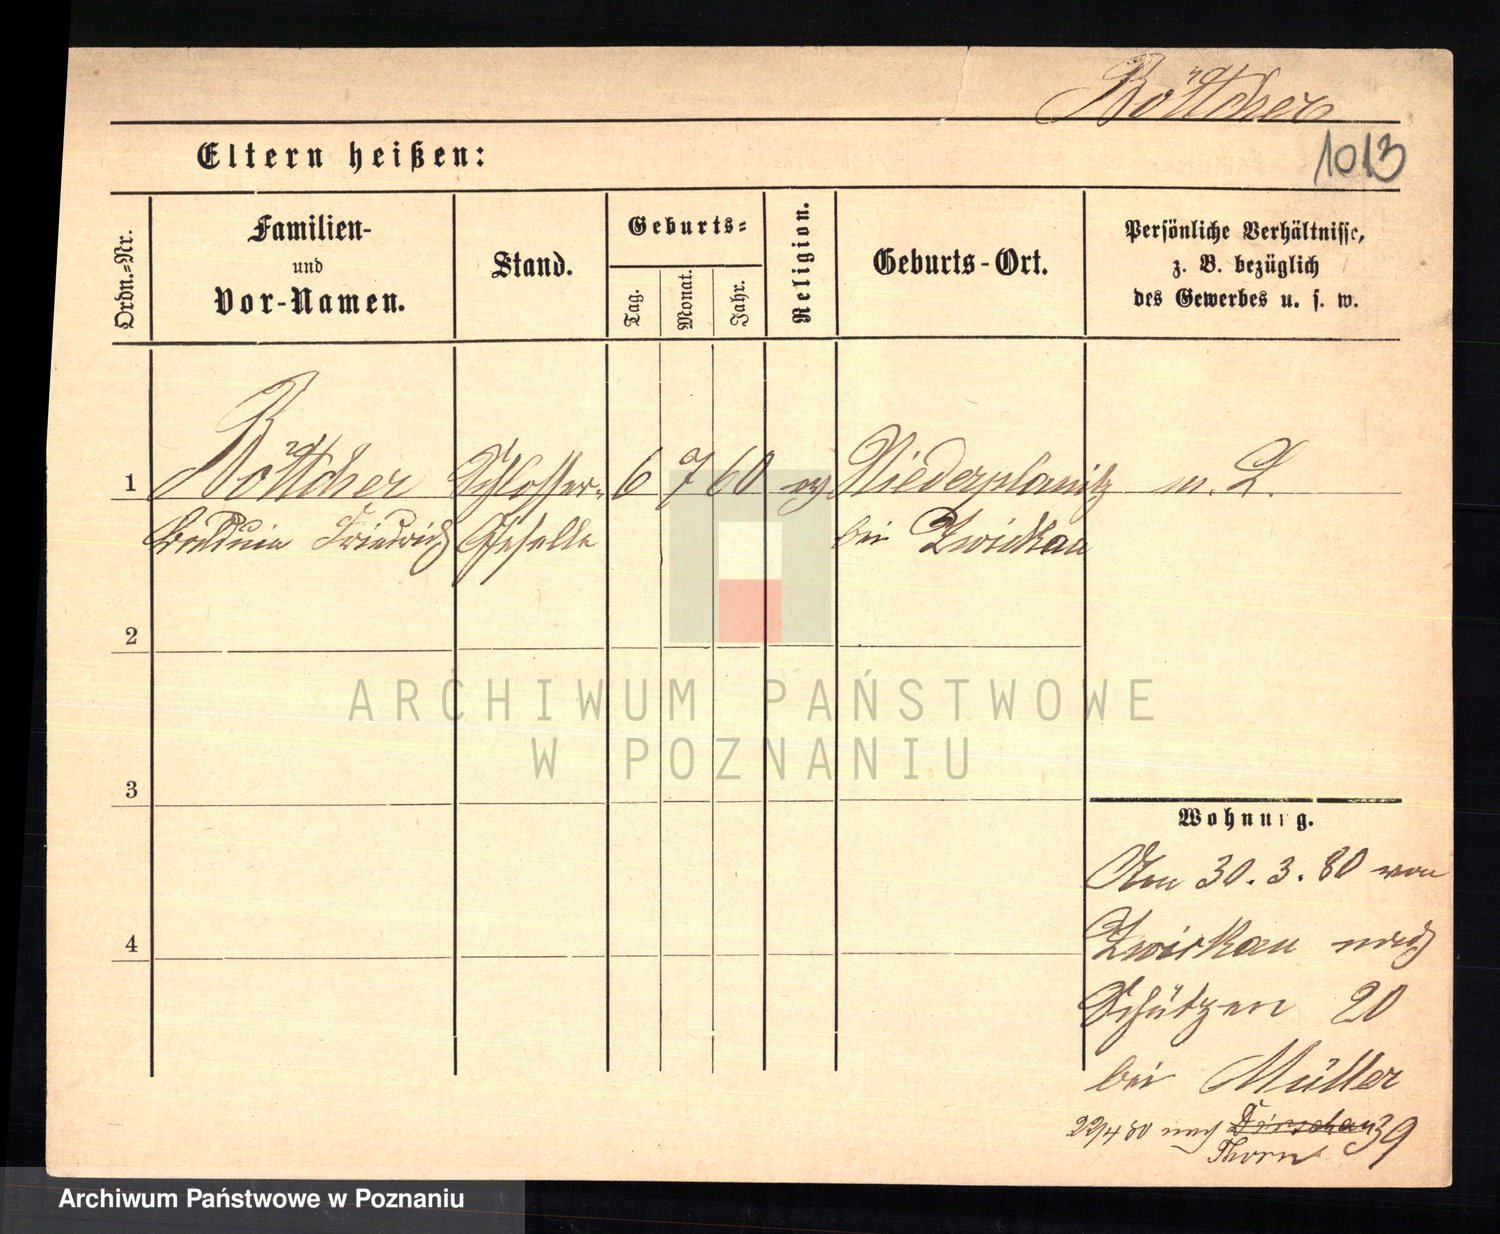 Böttcher
Eltern heißen:
1013
Ordn.=Nr.
Familien-
und
Vor-Namen.
Stand.
Geburts=
Tag.
Monat.
Jahr.
Religion.
Geburts-Ort.
Persönliche Verhältnisse,
z. B. bezüglich
des Gewerbes u. s. w.
1
Böttcher Schlosser- 6 7 60 ev Niederplanitz m. L.
Friedrich Geselle bei Zwickau
2
ARCHIWUM PAŃSTWOWE
W POZNANIU
3
Wohnung.
Am 30. 3. 80 von
4
Zwickau nach
Schützen 20
bei Müller
22/4 80 nach Dirschau 39
Thorn
Archiwum Państwowe w Poznaniu